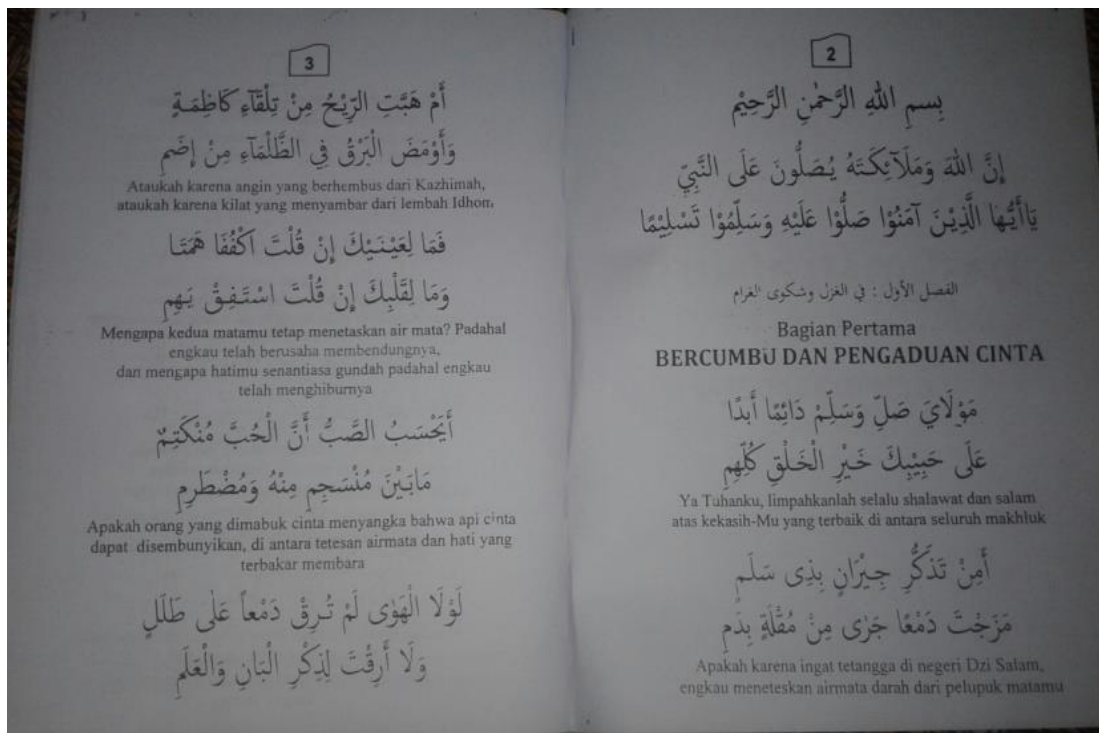 2
بِسمِ اللهِ الرَّحْمٰنِ الرَّحِيْمِ
إِنَّ اللهَ وَمَلَآئِكَتَهُ يُصَلُّونَ عَلَى النَّبِيّ
يَاأَيُّهَا الَّذِيْنَ آمَنُوْا صَلُّوْا عَلَيْهِ وَسَلِّمُوْا تَسْلِيْمًا
الفصل الأول : في الغزل وشكوى الغرام
Bagian Pertama
BERCUMBU DAN PENGADUAN CINTA
مَوْلَايَ صَلِّ وَسَلِّمْ دَائِمًا أَبَدًا
عَلَى حَبِيْبِكَ خَيْرِ الْخَلْقِ كُلِّهِمِ
Ya Tuhanku, limpahkanlah selalu shalawat dan salam
atas kekasih-Mu yang terbaik di antara seluruh makhluk
أَمِنْ تَذَكُّرِ جِيْرَانٍ بِذِى سَلَمٍ
مَزَجْتَ دَمْعًا جَرٰى مِنْ مُقْلَةٍ بِدَمِ
Apakah karena ingat tetangga di negeri Dzi Salam,
engkau meneteskan airmata darah dari pelupuk matamu
3
أَمْ هَبَّتِ الرِّيْحُ مِنْ تِلْقَآءِ كَاظِمَةٍ
وَأَوْمَضَ الْبَرْقُ فِي الظَّلْمَآءِ مِنْ إِضَمِ
Ataukah karena angin yang berhembus dari Kazhimah,
ataukah karena kilat yang menyambar dari lembah Idhom.
فَمَا لِعَيْنَيْكَ إِنْ قُلْتَ اكْفُفَا هَمَتَا
وَمَا لِقَلْبِكَ إِنْ قُلْتَ اسْتَفِقْ يَهِمِ
Mengapa kedua matamu tetap menetaskan air mata? Padahal
engkau telah berusaha membendungnya,
dan mengapa hatimu senantiasa gundah padahal engkau
telah menghiburnya
أَيَحْسَبُ الصَّبُّ أَنَّ الْحُبَّ مُنْكَتِمٌ
مَابَيْنَ مُنْسَجِمٍ مِنْهُ وَمُضْطَرِمِ
Apakah orang yang dimabuk cinta menyangka bahwa api cinta
dapat disembunyikan, di antara tetesan airmata dan hati yang
terbakar membara
لَوْلَا الْهَوٰى لَمْ تُرِقْ دَمْعاً عَلٰى طَلَلٍ
وَلَا أَرِقْتَ لِذِكْرِ الْبَانِ وَالْعَلَمِ